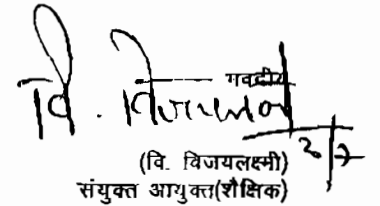 भवदीय
वि. विजयलक्ष्मी
2/7
(वि. विजयलक्ष्मी)
संयुक्त आयुक्त(शैक्षिक)